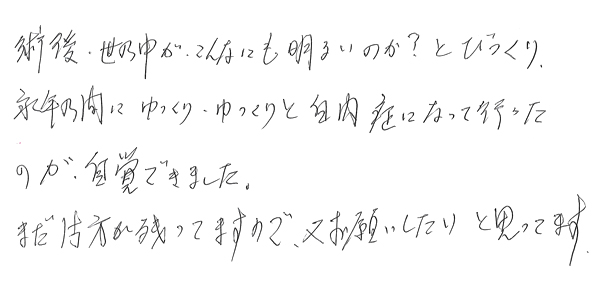 術後、世の中が、こんなにも明るいのか?とびっくり、
永年の間に ゆっくり、ゆっくりと白内症になって行った
のが、自覚できました。
まだ片方が残ってますので、又お願いしたいと思ってます。